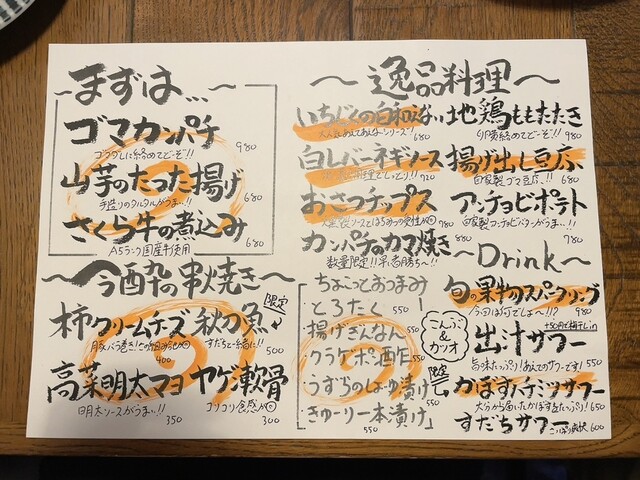 〜まずは…〜
ゴマカンパチ
ゴマダレに絡めてどーぞ!! 980
山芋のたつた揚げ
手造りのタルタルがうまい!! 680
さくら牛の煮込み
A5ランク国産牛使用 680
〜今酔の串焼き〜
柿クリームチーズ
400
秋刀魚
限定
すだちと一緒に!! 550
高菜明太マヨ
明太ソースがうまい!! 350
ヤゲン軟骨
コリコリ食感が◎ 300
〜逸品料理〜
いちじくの白和え
680
地鶏ももたたき
卵黄絡めてどーぞ!! 980
白レバーネギソース
920
揚げ出し豆腐
自家製ゴマ豆腐!! 680
おさつチップス
780
アンチョビポテト
780
カンパチのカマ焼き
数量限定!!早い者勝ち〜!! 880
ちょこっとおつまみ
とろたく 550
揚げぎんなん 550
クラケポ酒 550
うずらのしょーゆ漬け 550
きゅーり一本漬け 550
〜Drink〜
旬の果物のスパークリング
今回は何でしょ〜!!? 980
+50円で梅干しin
こんぶ&カツオ
出汁サワー
旨味たっぷり!あえてのサワーです! 550
限定
かぼすハチミツサワー
大分から届いたかぼすをたっぷり! 650
すだちサワー
600